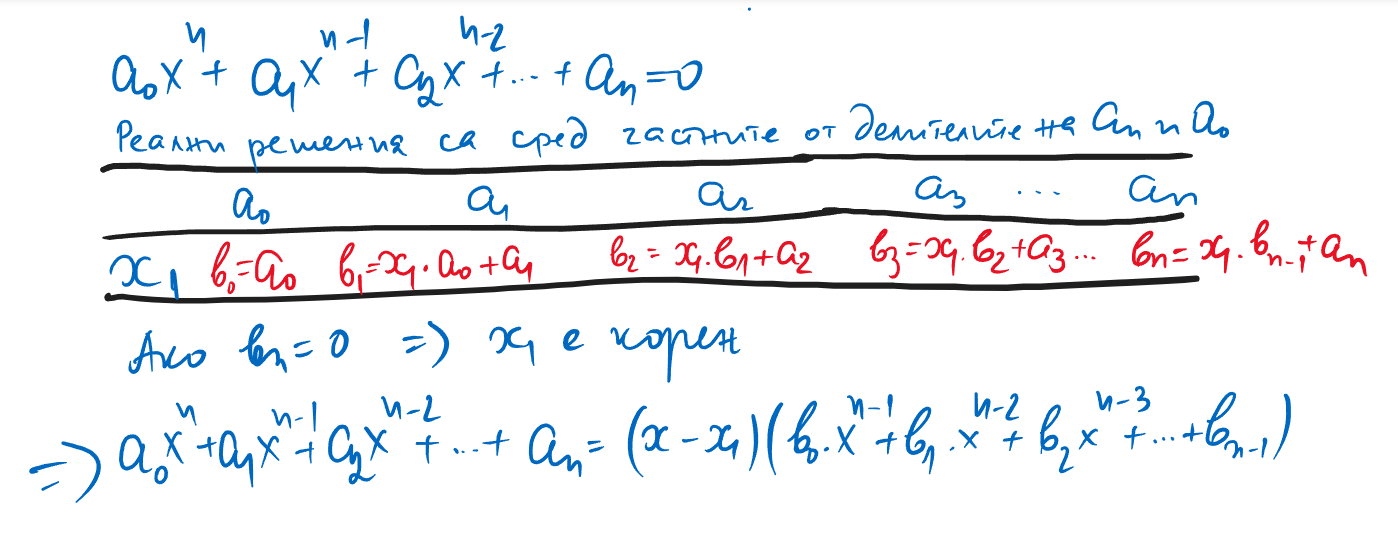 a₀xⁿ + a₁xⁿ⁻¹ + a₂xⁿ⁻² + ... + aₙ = 0
Реални решения са сред частните от делителите на aₙ и a₀
a₀ a₁ a₂ a₃ ... aₙ
x₁ b₀=a₀ b₁=x₁·a₀+a₁ b₂=x₁·b₁+a₂ b₃=x₁·b₂+a₃... bₙ=x₁·bₙ₋₁+aₙ
Ако bₙ=0 => x₁ е корен
=> a₀xⁿ+a₁xⁿ⁻¹+a₂xⁿ⁻²+...+aₙ=(x-x₁)(b₀·xⁿ⁻¹+b₁·xⁿ⁻²+b₂xⁿ⁻³+...+bₙ₋₁)